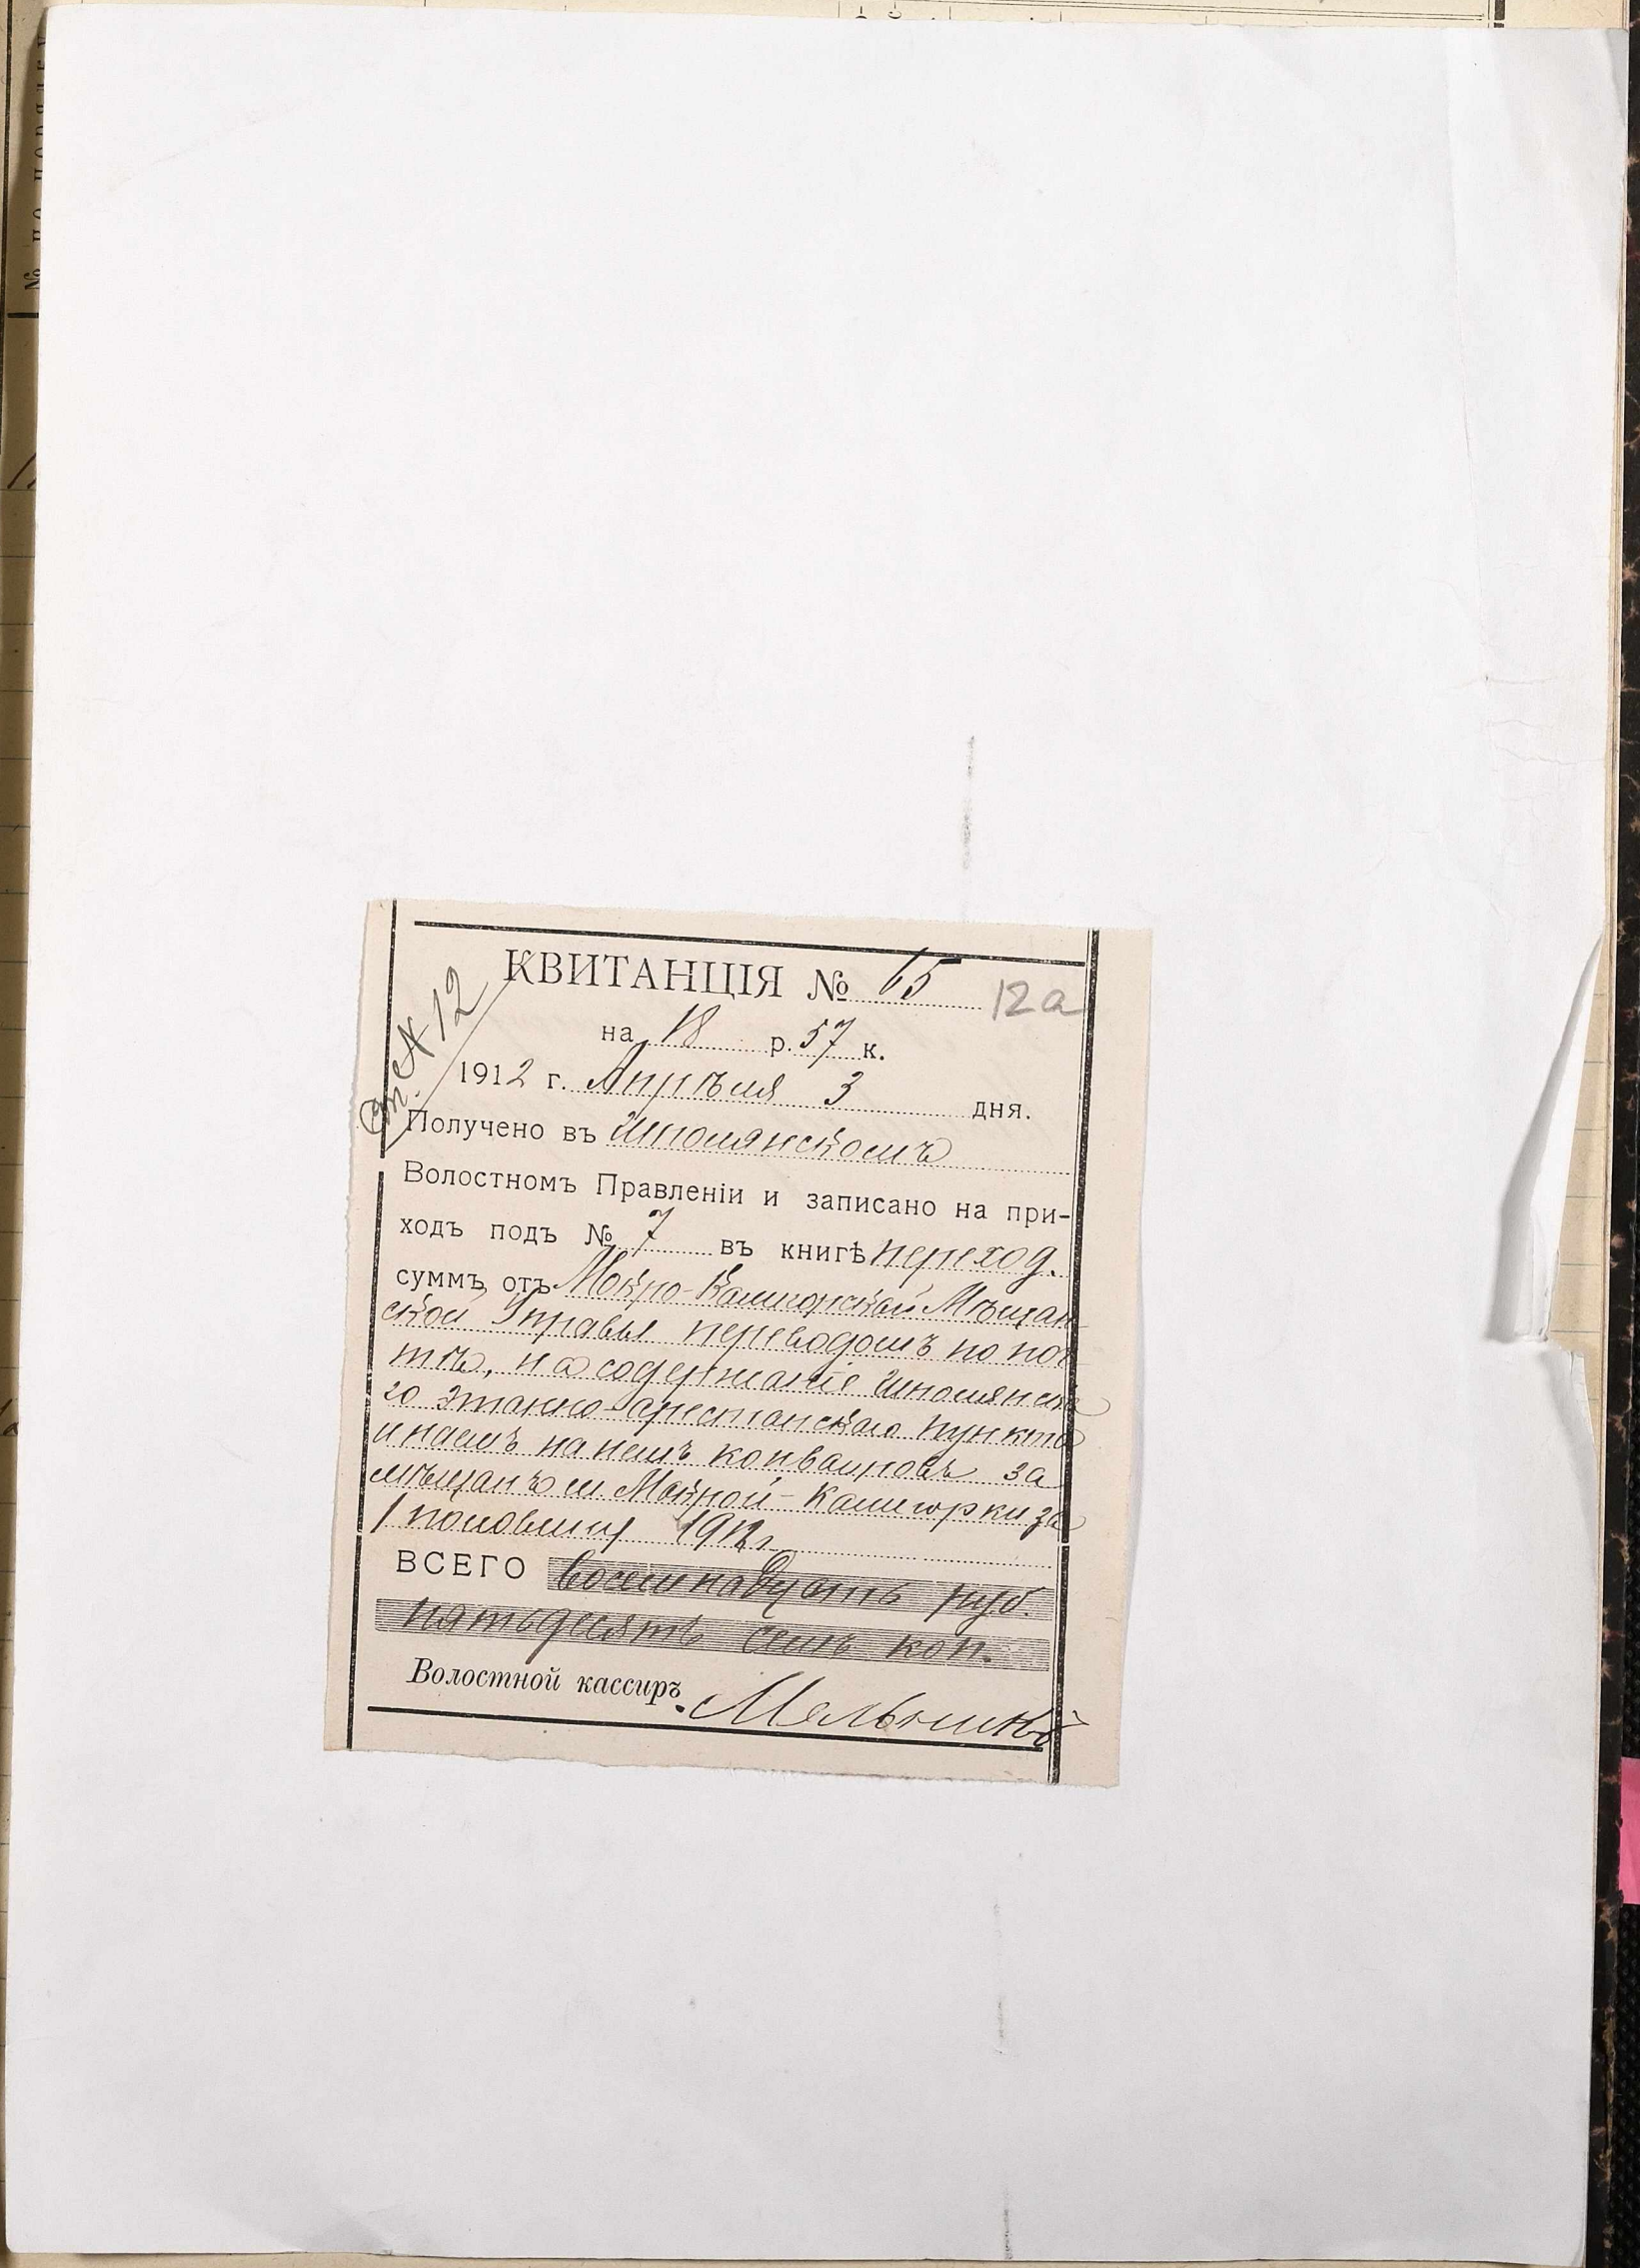 № по поряд
КВИТАНЦІЯ № 65 12а
ст. № 12
на 18 р. 57 к.
1912 г. Апрѣля 3 дня.
Получено въ Шполянскомъ
Волостномъ Правленіи и записано на при-
ходъ подъ № 7 въ книгѣ переход.
суммъ отъ Мокро-Калигорской Мѣщан
ской Управы переводомъ по поч
тѣ, на содержаніе Шполянска
го этапно-арестанскаго пункта
и наемъ на немъ конваировъ за
мѣщанъ м. Мокрой-Калигорки за
1 половину 1912 г.
ВСЕГО восемнадцать руб.
пятьдесятъ семь коп.
Волостной кассиръ Мельникъ